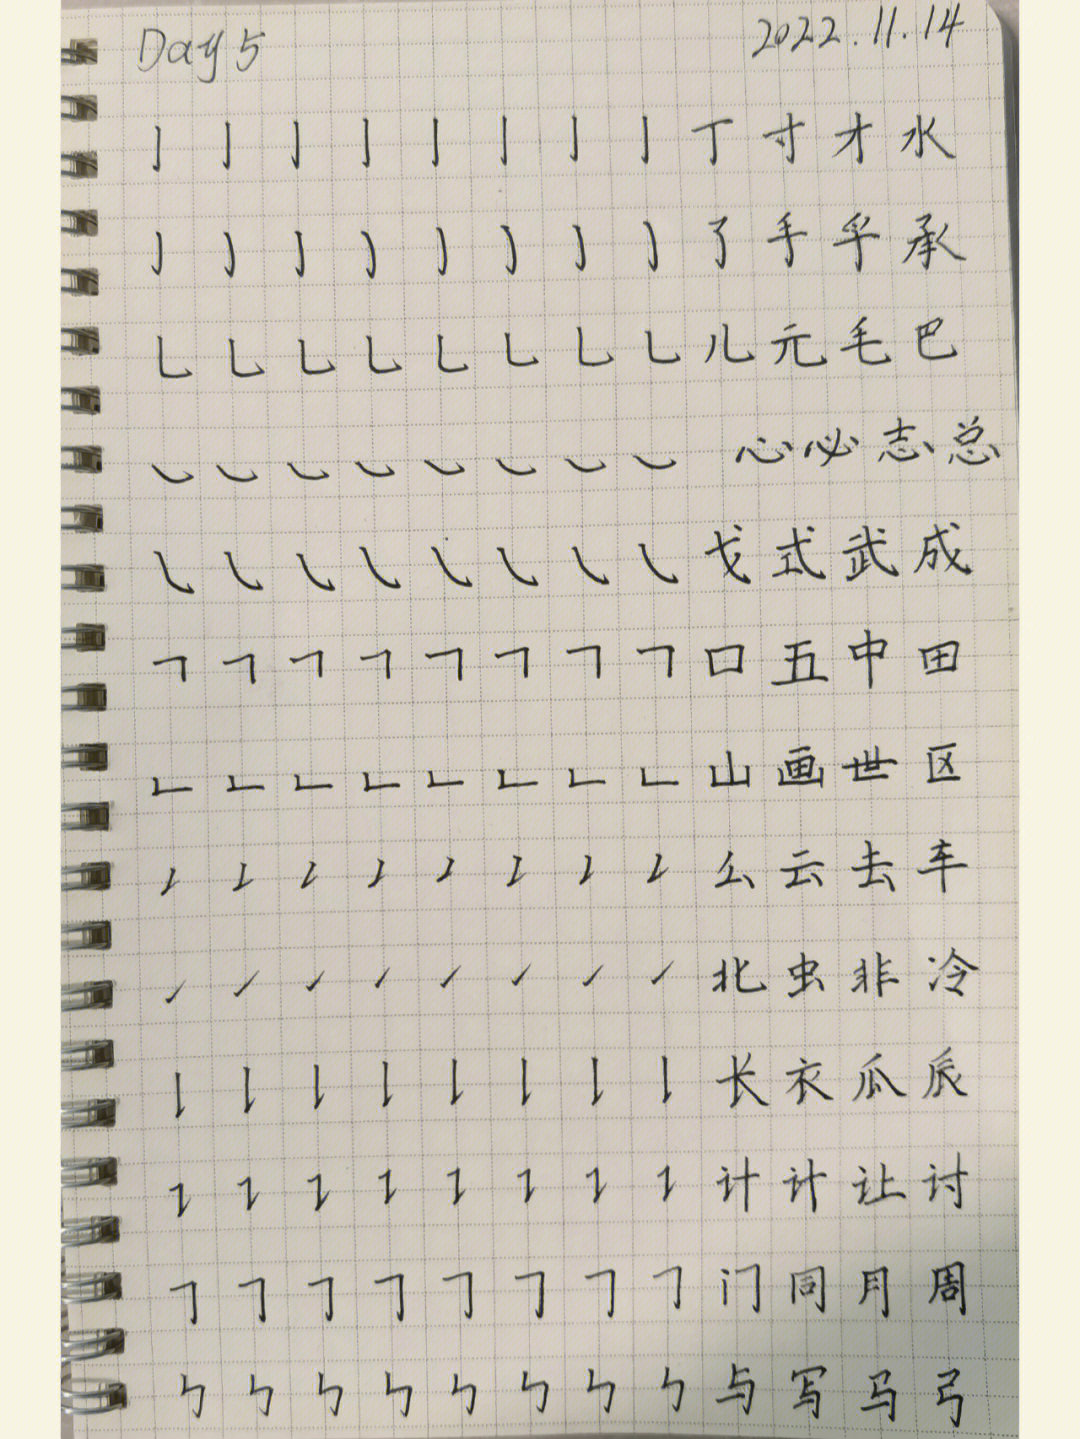 Day 5 2022.11.14
亅 亅 亅 亅 亅 亅 亅 亅 丁 寸 才 水
㇁ ㇁ ㇁ ㇁ ㇁ ㇁ ㇁ ㇁ 了 手 乎 承
乚 乚 乚 乚 乚 乚 乚 乚 儿 元 毛 巴
㇃ ㇃ ㇃ ㇃ ㇃ ㇃ ㇃ ㇃ 心 必 志 总
㇂ ㇂ ㇂ ㇂ ㇂ ㇂ ㇂ ㇂ 戈 式 武 成
㇕ ㇕ ㇕ ㇕ ㇕ ㇕ ㇕ ㇕ 口 五 中 田
㇗ ㇗ ㇗ ㇗ ㇗ ㇗ ㇗ ㇗ 山 画 世 区
㇜ ㇜ ㇜ ㇜ ㇜ ㇜ ㇜ ㇜ 么 云 去 车
㇀ ㇀ ㇀ ㇀ ㇀ ㇀ ㇀ ㇀ 北 虫 非 冷
㇙ ㇙ ㇙ ㇙ ㇙ ㇙ ㇙ ㇙ 长 衣 瓜 辰
㇊ ㇊ ㇊ ㇊ ㇊ ㇊ ㇊ ㇊ 计 计 让 讨
㇆ ㇆ ㇆ ㇆ ㇆ ㇆ ㇆ ㇆ 门 同 月 周
㇉ ㇉ ㇉ ㇉ ㇉ ㇉ ㇉ ㇉ 与 写 马 弓